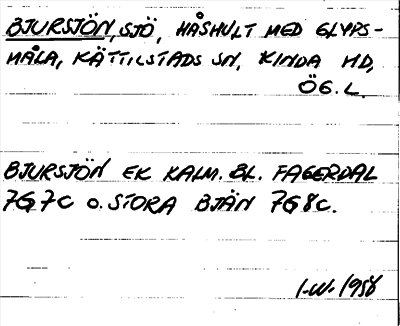 BJURSJÖN, SJÖ, HÅSHULT MED GLYPS-
MÅLA, KÄTTILSTADS SN, KINDA HD,
ÖG.L.
BJURSJÖN EK KALM. BL. FAGERDAL
7G7C O. STORA BJÄN 7G8C.
I.W. 1958